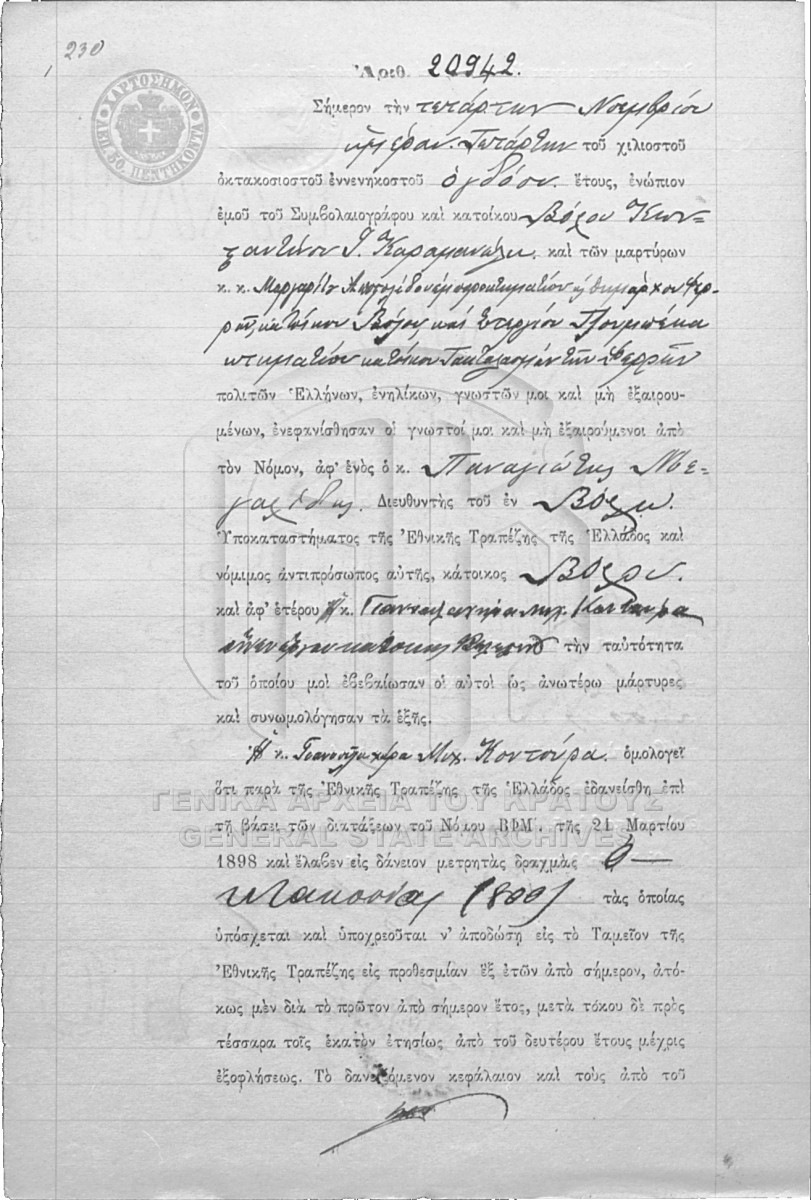 230
Ἀριθ. 20942.
ΧΑΡΤΟΣΗΜΟΝ
Σήμερον τὴν τετάρτην Νοεμβρίου
ἡμέραν Τετάρτην τοῦ χιλιοστοῦ
ὀκτακοσιοστοῦ ἐννενηκοστοῦ ὀγδόου ἔτους, ἐνώπιον
ἐμοῦ τοῦ Συμβολαιογράφου καὶ κατοίκου Βόλου Κων-
σταντίνου Καραμανώλη καὶ τῶν μαρτύρων
κ. κ. Μαργαρίτη κτηματίου δημάρχου Φερ-
ρῶν, κατοίκου Βόλου καὶ Στεργίου
κτηματίου κατοίκου
πολιτῶν Ἑλλήνων, ἐνηλίκων, γνωστῶν μοι καὶ μὴ ἐξαιρου-
μένων, ἐνεφανίσθησαν οἱ γνωστοί μοι καὶ μὴ ἐξαιρούμενοι ἀπὸ
τὸν Νόμον, ἀφ' ἑνὸς ὁ κ. Παναγιώτης Με-
γαρίδης. Διευθυντὴς τοῦ ἐν Βόλῳ.
Ὑποκαταστήματος τῆς Ἐθνικῆς Τραπέζης τῆς Ἑλλάδος καὶ
νόμιμος ἀντιπρόσωπος αὐτῆς, κάτοικος Βόλου.
καὶ ἀφ' ἑτέρου ἡ κ. Μιχ. Κοντούρα
κάτοικος τὴν ταὐτότητα
τοῦ ὁποίου μοὶ ἐβεβαίωσαν οἱ αὐτοὶ ὡς ἀνωτέρω μάρτυρες
καὶ συνωμολόγησαν τὰ ἑξῆς.
Ἡ κ. Μιχ. Κοντούρα. ὁμολογεῖ
ὅτι παρὰ τῆς Ἐθνικῆς Τραπέζης τῆς Ἑλλάδος ἐδανείσθη ἐπὶ
ΓΕΝΙΚΑ ΑΡΧΕΙΑ ΤΟΥ ΚΡΑΤΟΥΣ
τῇ βάσει τῶν διατάξεων τοῦ Νόμου ΒΦΜ'. τῆς 21 Μαρτίου
GENERAL STATE ARCHIVES
1898 καὶ ἔλαβεν εἰς δάνειον μετρητὰς δραχμὰς ὀ-
κτακοσίας (800) τὰς ὁποίας
ὑπόσχεται καὶ ὑποχρεοῦται ν' ἀποδώσῃ εἰς τὸ Ταμεῖον τῆς
Ἐθνικῆς Τραπέζης εἰς προθεσμίαν ἓξ ἐτῶν ἀπὸ σήμερον, ἀτό-
κως μὲν διὰ τὸ πρῶτον ἀπὸ σήμερον ἔτος, μετὰ τόκου δὲ πρὸς
τέσσαρα τοῖς ἑκατὸν ἐτησίως ἀπὸ τοῦ δευτέρου ἔτους μέχρις
ἐξοφλήσεως. Τὸ δανειζόμενον κεφάλαιον καὶ τοὺς ἀπὸ τοῦ